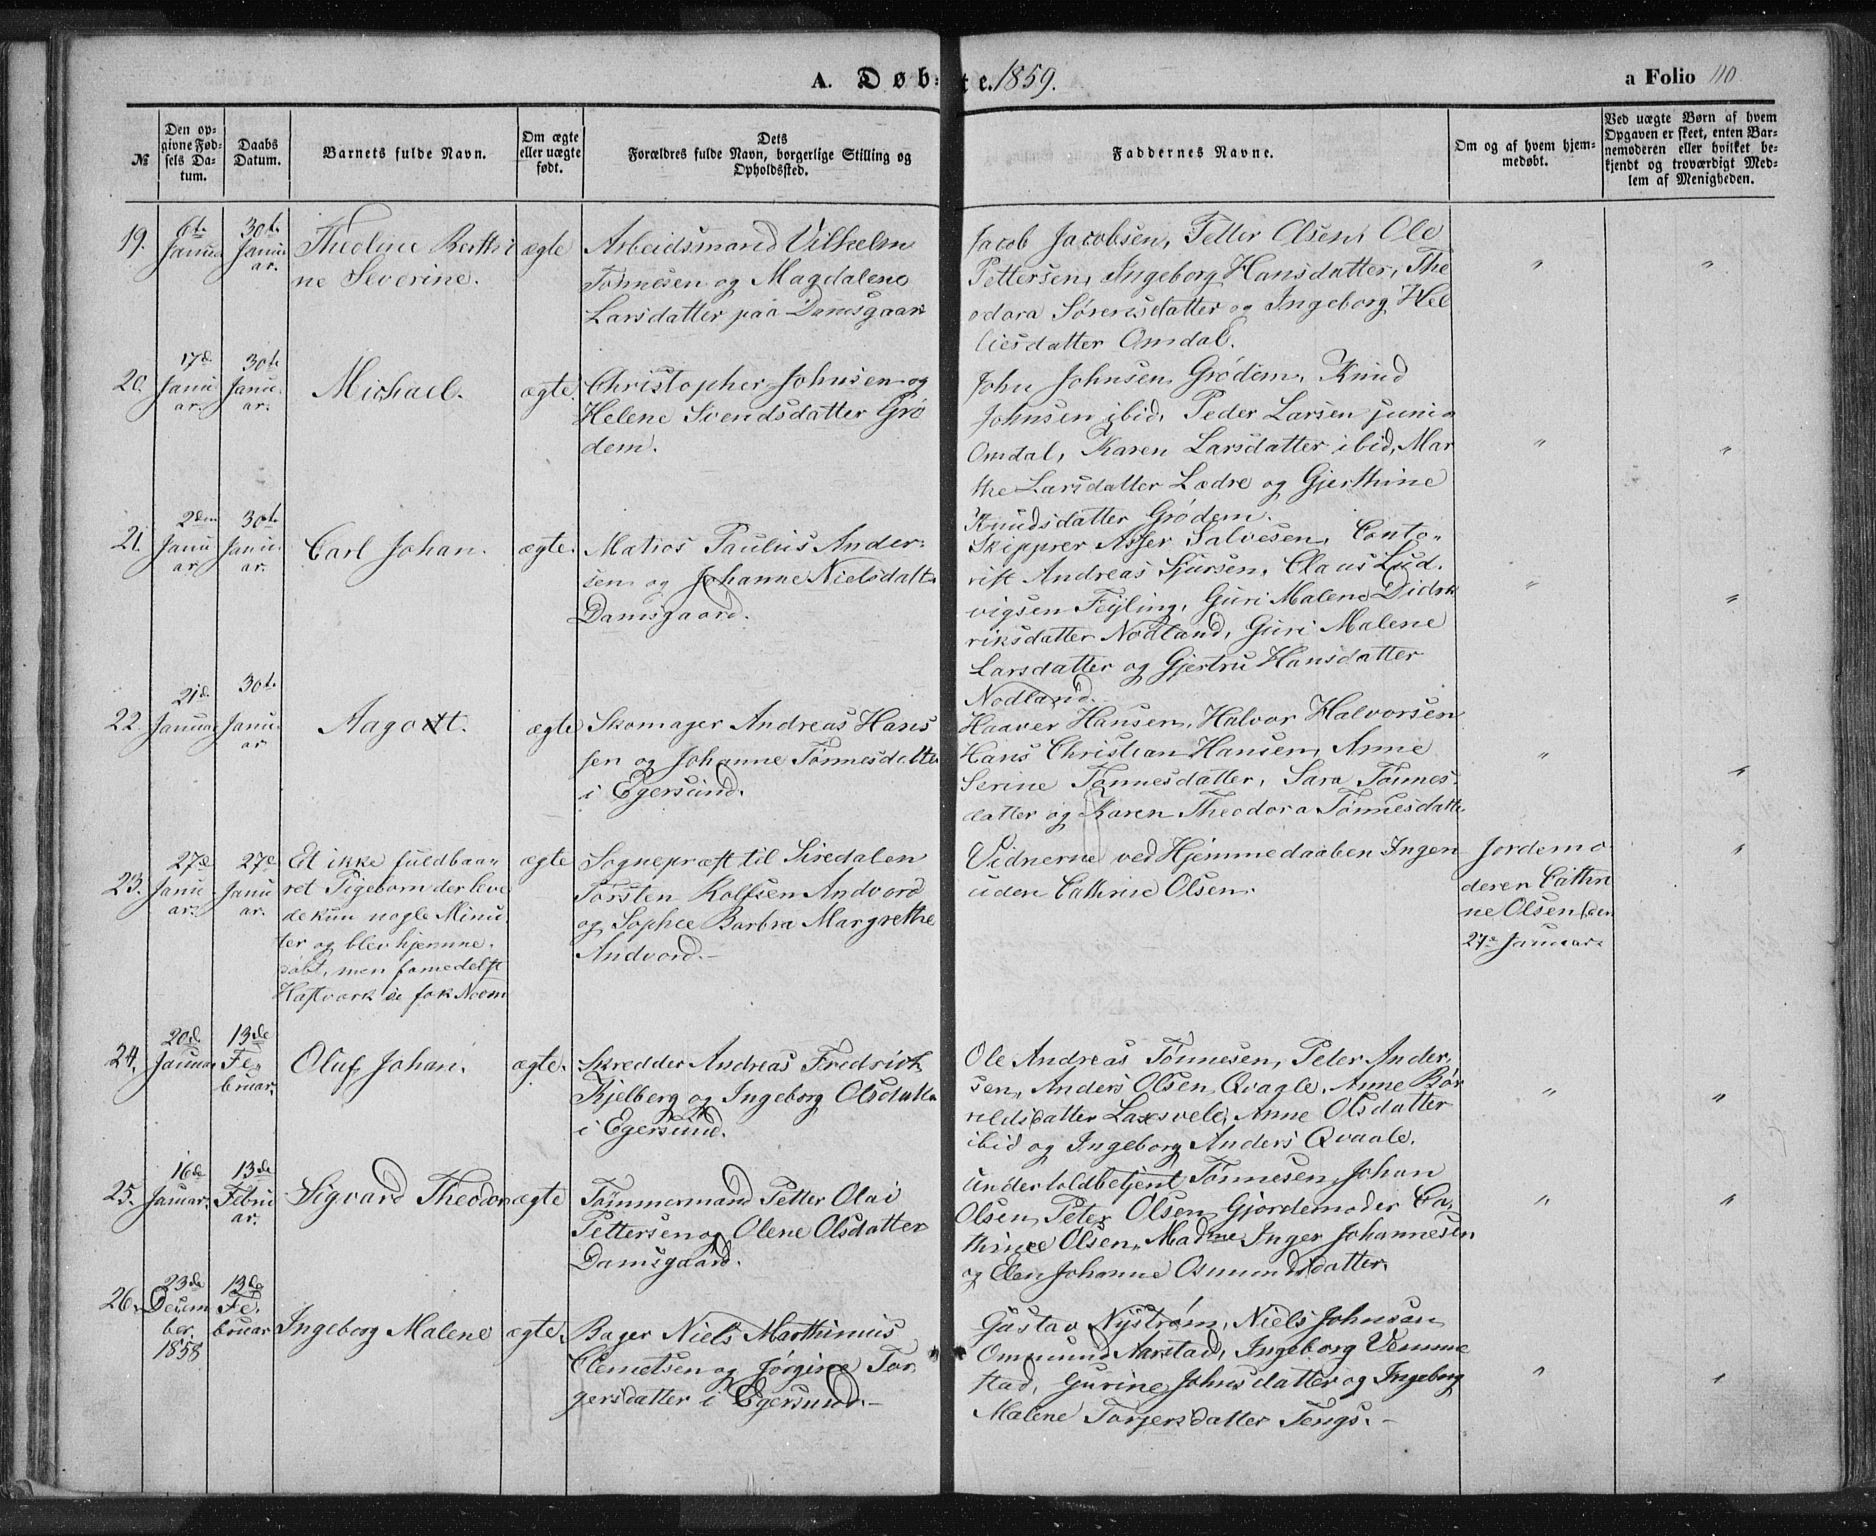 A. Døbte. 1859.
a Folio 110
№
Den op-
givne Fød-
sels Da-
tum.
Daabs
Datum.
Barnets fulde Navn.
Om ægte
eller uægte
født.
Dets
Forældres fulde Navn, borgerlige Stilling og
Opholdssted.
Faddernes Navne.
Om og af hvem hjem-
medøbt.
Ved uægte Børn af hvem
Opgaven er skeet, enten Bar-
nemoderen eller hvilket be-
kjendt og troværdigt Med-
lem af Menigheden.
19.
6te
Januar
30te
Janu
ar.
Theoline Berthi
ne Severine.
ægte
Arbeidsmand Vilhelm
Tønnesen og Magdalene
Larsdatter paa Damsgaard
Jacob Jacobsen, Petter Olsen, Ole
Pettersen, Ingeborg Hansdatter, The
odora Sørensdatter og Ingeborg Hel
liesdatter Omdal.
"
"
20.
17d
Janu
ar.
30te
Janu
ar.
Michael.
ægte
Christopher Johnsen og
Helene Svendsdatter Grø
dem.
John Johnsen Grødem, Knud
Johnsen ibid, Peder Larsen junior
Omdal, Karen Larsdatter ibid, Mar
the Larsdatter Lædre og Gjerthine
Knudsdatter Grødem.
"
"
21.
2den
Janu
ar.
30te
Janu
ar.
Carl Johan.
ægte.
Matios Paulus Ander-
sen og Johanne Nielsdatt.
Damsgaard.
Skipprer Asser Salvesen, Conto-
rist Andreas Sjursen, Claus Lud.
vigsen Feyling, Guri Malene Didri
riksdatter Nodland, Guri Malene
Larsdatter og Gjertru Hansdatter
Nodland.
"
"
22.
21d.
Januar
30te
Janu.
ar.
Aagott.
ægte
Skomager Andreas Hans
sen og Johanne Tønnesdatter
i Egersund.
Haaver Hansen, Halvor Halvorsen
Hans Christian Hansen, Anne
Serine Tønnesdatter, Sara Tønnes-
datter og Karen Theodora Tønnesdatte
"
"
23.
27de
Janu
ar.
27de
Janu
ar.
Et ikke fuldbaa-
ret Pigebarn der leve
de kun nogle Minu-
ter og blev hjemme-
døbt, men formedelst
Hastværk ei fik Navn
ægte
Sognepræst til Siredalen
Torsten Rolfsen Andvord
og Sophie Barbra Margrethe
Andvord.
Vidnerne ved Hjemmedaaben Ingen
uden Cathrine Olsen.
Jordemo
deren Cathri
ne Olsen den
27de Januar.
"
24.
20d.
Januar
13de
Fe-
bruar.
Oluf Johan.
ægte.
Skredder Andreas Fredrich
Kjelberg og Ingeborg Olsdatte
i Egersund.
Ole Andreas Tønnesen, Peter Ander,
sen, Anders Olsen Qvaale, Anne Bør
rildsdatter Laxsvele, Anne Olsdatter
ibid og Ingeborg Anders Qvaale.
"
"
25.
16de
Januar.
13de
Febru
ar.
Sigvard Theodor
ægte
Tømmermand Petter Olai
Pettersen og Olene Olsdatter
Damsgaard.
Undertoldbetjent Tønnesen, Johan
Olsen, Peter Olsen, Gjordemoder Ca,
thrine Olsen, Madme Inger Johannesen
og Elen Johanne Osmundsdatter.
"
"
26.
23de
Decem
ber.
1858
13de
Fe.
bruar
Ingeborg Malene
ægte.
Bager Niels Marthinius
Clemetsen og Jørgine Tor
gersdatter i Egersund.
Gustav Nystrøm, Niels Johnsen
Ommund Aarstad, Ingeborg Vemme
stad, Gurine Johnsdatter og Ingeborg
Malene Torgersdatter Tengs.
"
"